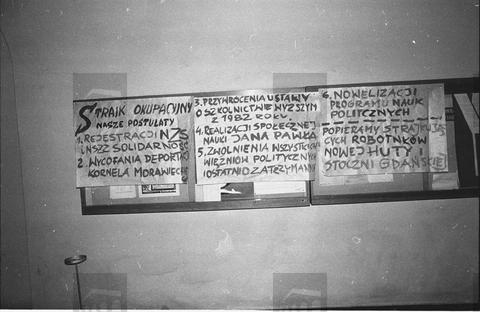 STRAJK OKUPACYJNY
NASZE POSTULATY
1. REJESTRACJI NZS
I NSZZ SOLIDARNOŚĆ
2. WYCOFANIA DEPORTACJI
KORNELA MORAWIECKIEGO
3. PRZYWRÓCENIA USTAWY
O SZKOLNICTWIE WYŻSZYM
Z 1982 ROKU.
4. REALIZACJI SPOŁECZNEJ
NAUKI JANA PAWŁA
5. ZWOLNIENIA WSZYSTKICH
WIĘŹNIÓW POLITYCZNYCH
I OSTATNIO ZATRZYMANYCH
6. NOWELIZACJI
PROGRAMU NAUK
POLITYCZNYCH
POPIERAMY STRAJKUJĄ
CYCH ROBOTNIKÓW
NOWEJ HUTY I
STOCZNI GDAŃSKIEJ